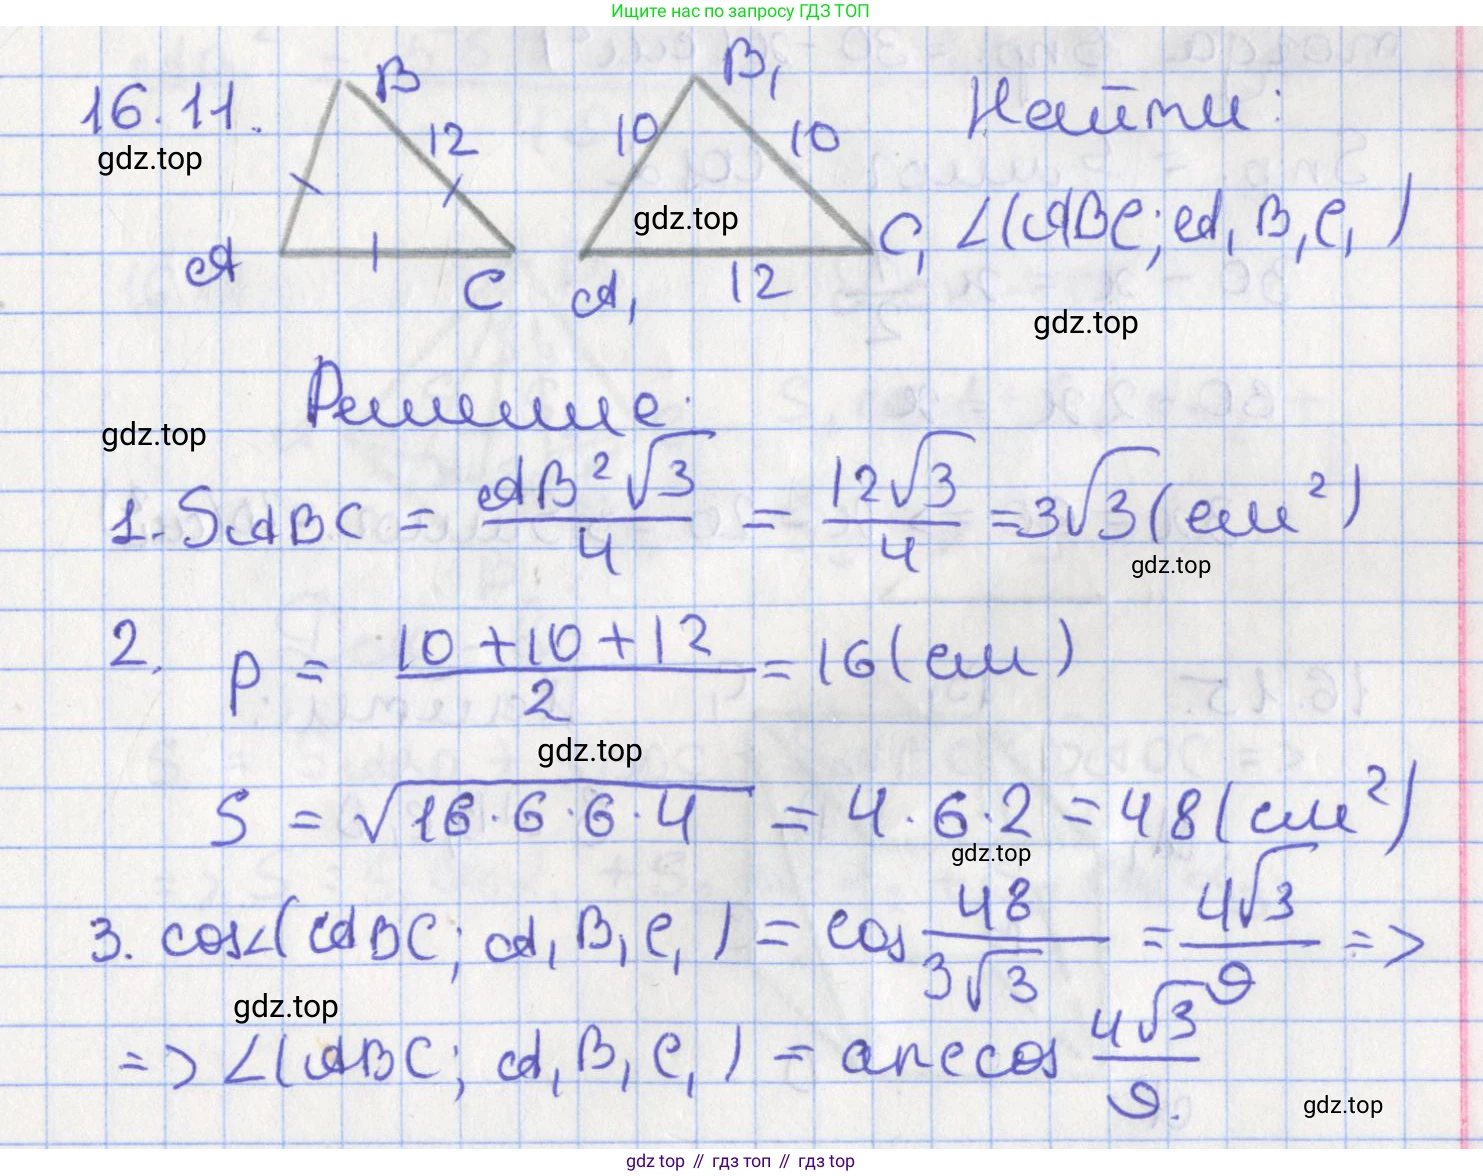 Ищите нас по запросу ГДЗ ТОП
16.11.
B
12
A
C
B₁
10
10
A₁
12
C₁
Найти:
∠(ABC; A₁B₁C₁)
gdz.top
gdz.top
gdz.top
Решение:
gdz.top
1. SABC = AB²√3/4 = 12√3/4 = 3√3 (см²)
gdz.top
2. p = 10+10+12/2 = 16 (см)
gdz.top
S = √16·6·6·4 = 4·6·2 = 48 (см²)
gdz.top
3. cos∠(ABC; A₁B₁C₁) = cos 48/3√3 = 4√3/9 =>
gdz.top
=> ∠(ABC; A₁B₁C₁) = arccos 4√3/9.
gdz.top
gdz top // гдз топ // gdz top